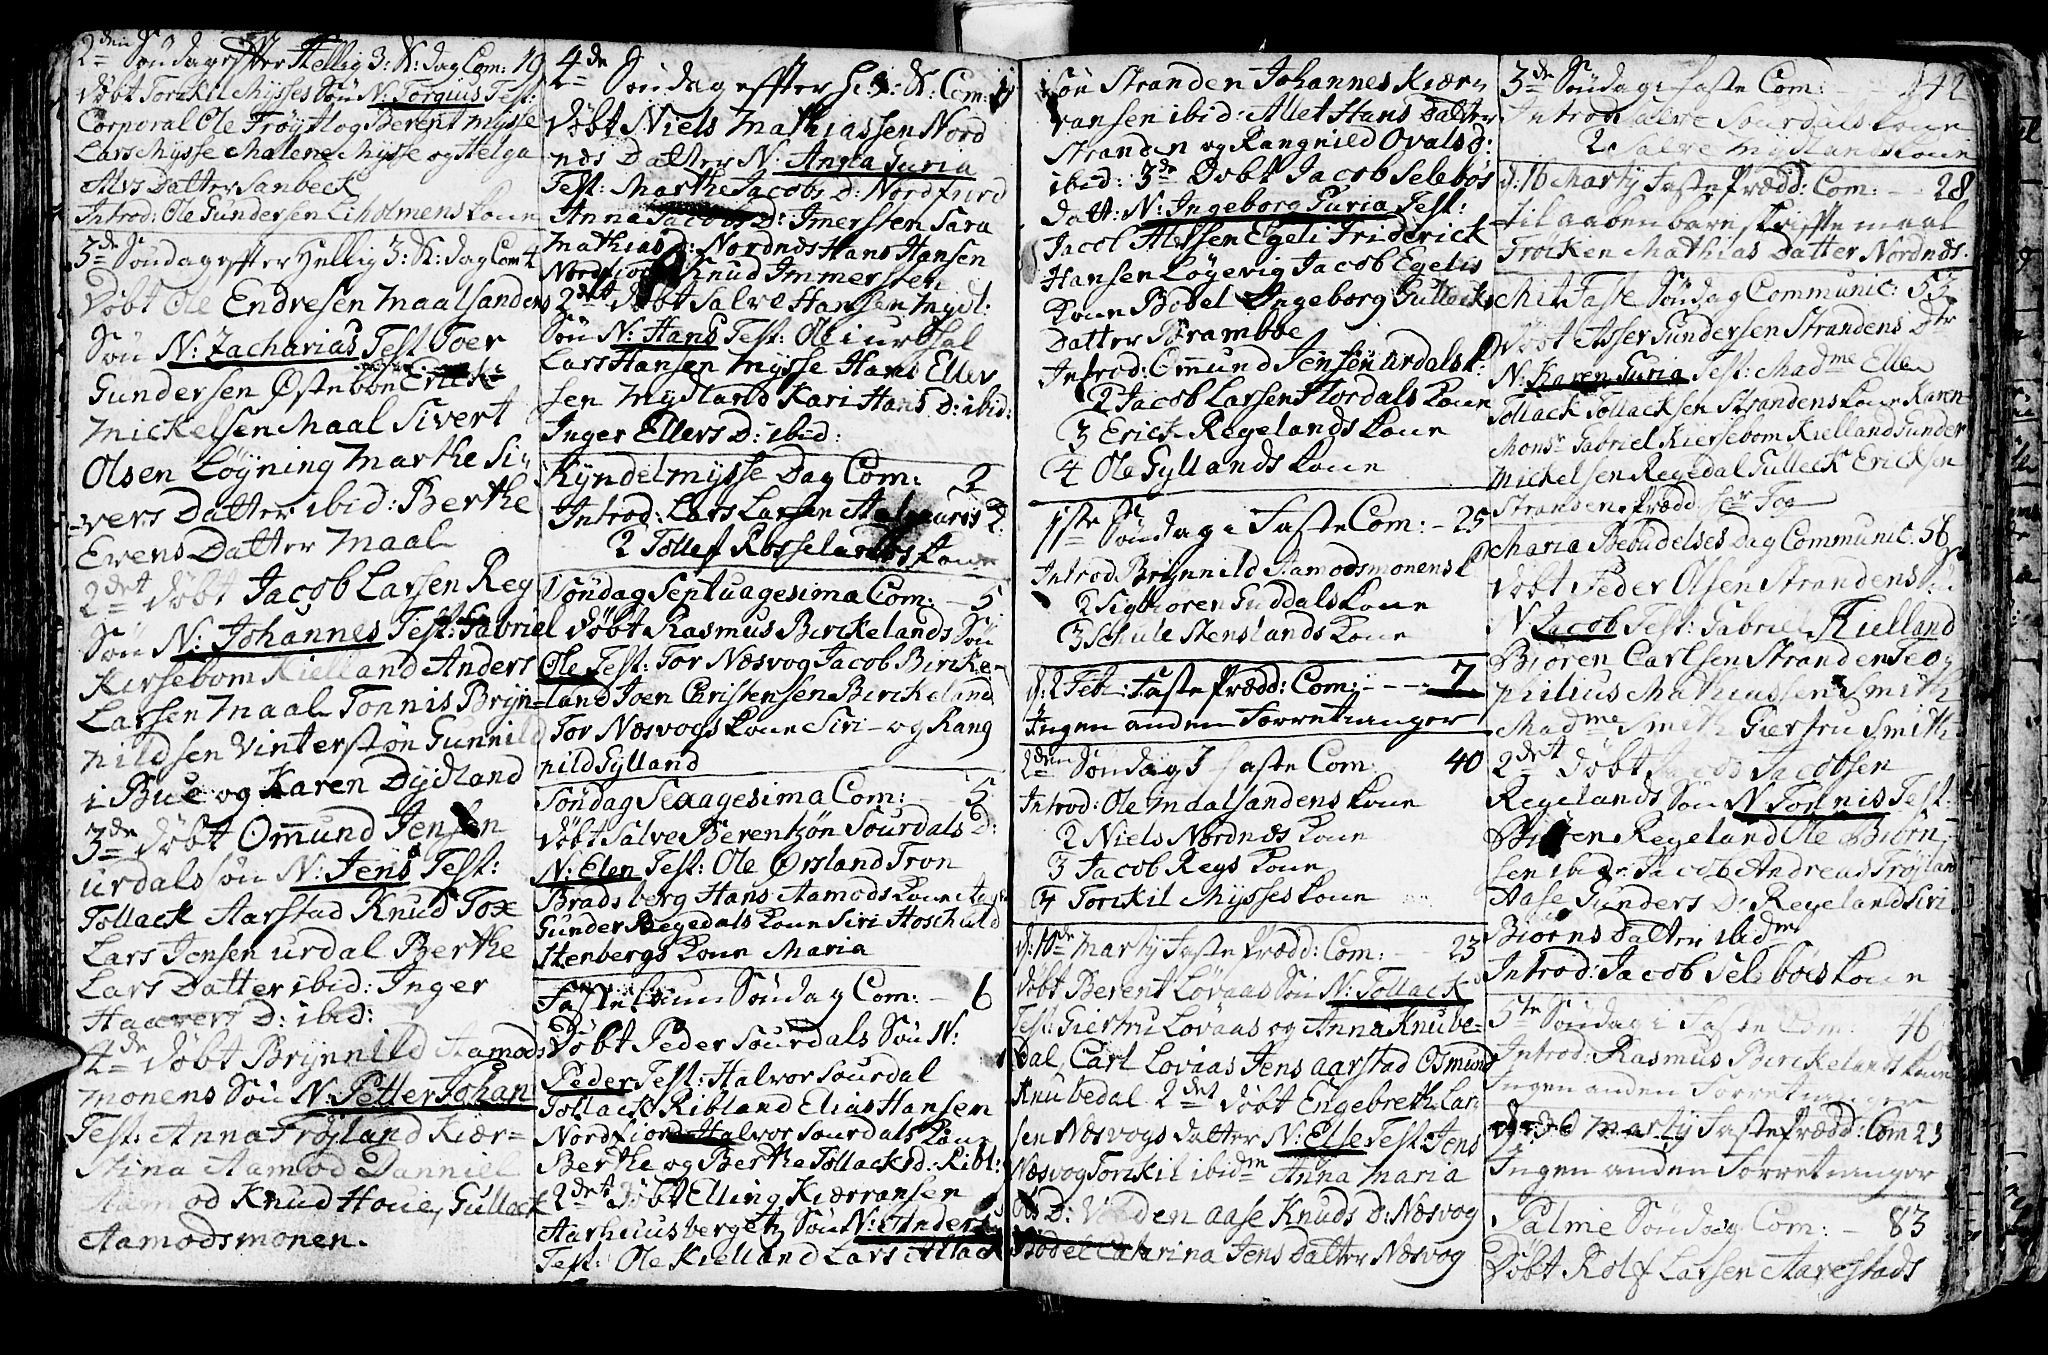 2den Søndag efter Hellig 3: K: dag Com: 19
Døbt Torckil Mysses Søn N: Torgius Test:
Corporal Ole Frøytlog Berent Mysse
Lars Mysse Malene Mysse og Helga
Alvs Datter Sanbeck
Introd: Ole Gundersen Liholmens Kone
3de Søndag efter Hellig 3: K: dag Com 4
Døbt Ole Endresen Maalsandens
Søn N: Zacharias Test Toer
Gundersen Østebøn
Mickelsen Maal Sivert
Olsen Løyning Marthe Si-
vers Datter ibid: Berthe
Evens Datter Maal
2det Døbt Jacob Larsen Reg
Søn N: Johannes Test: Gabriel
Kirsebom Kielland Anders
Larsen Maal Tonnis Bryn-
nildsen Vinterstøn Gunnild
i Bue og Karen Dydland
3de Døbt Omund Jensen
urdals søn N: Jens Test:
Tollack Aarstad Knud Tox
Lars Jensen urdal Berthe
Lars Datter ibid: Inger
Haavers D: ibid:
4de Døbt Brynnild Aamods
monens Søn N: Petter Johan
Test: Anna Frøyland Kier-
stina Aamod Danniel
Aamod Knud Houe, Gulleck
Aamodsmonen.
4de Søndag effter H: 3: K: Com:
Døbt Niels Mathiassen Nord
nds Datter N: Anna Guria
Test: Marthe Jacobs D: Nordfiord
Anna Jacobs D: Imerssen Sara
Mathias D: Nordnds Hans Hansen
Nordfiord Knud Immerssen
2det Døbt Salve Hansen Mydl:
Søn N: Hans Test: Ole
Lars Hansen Mysse Hans Ellev
sen Mydland Kari Hans D: ibid:
Inger Ellevs D: ibid:
Kyndelmysse Dag Com: 2
Introd: Lars Larsen
2 Tollef Kone
Søndag Septuagesima Com: - 5
Døbt Rasmus Birckelands Søn
Ole Test: Tor Næsvog Jacob Bircke-
land Joen Christensen Birckeland
Tor Næsvogs Kone Siri - og Rang
nild Gylland
Søndag Sexagesima Com: - 5
Døbt Salve Berentzøn Sourdals D:
N: Elen Test: Ole Ørsland Tron
Bradsberg Hans Aamods Kone
Gunder Regedals Kone Siri Hoschuld
Stenbergs Kone Maria
Fastelaun Søndag Com: - 6
Døbt Peder Sourdals Søn N:
Peder Test: Halvor Sourdal
Tollack Ribland Elias Hansen
Nordfiord Halvor Sourdals Kone
Berthe og Berthe Tollacks D: Ribl:
2det Døbt Elling Kierransen
Aarhuusberget Søn N: Anders
Test: Ole Kielland Lars Allack
Søn Stranden Johannes Kiær-
ransen ibid: Allet Hans Datter
Stranden og Rangnild Ovals D:
ibid: 3de Døbt Jacob Selebøs
Datt: N: Ingeborg Guria Test:
Jacob Alfsen Egeli Friderick
Hansen Løgevig Jacob Egelis
Kone Bodel Ingeborg Gullecks
Datter
Introd: Omund Jensen urdals K:
2 Jacob Larsen Flordals Kone
3 Erick Regelands Kone
4 Ole Gyllands Kone
1ste Søndag i Faste Com: - 25
Introd Brynnild Aamodsmonens K
2 Sigbiøren Guddals Kone
3 Schule Stenslands Kone
d: 2 Feb: Faste Prædd: Com: - - - 7
Ingen anden Forretninger
2den Søndag I Faste Com 40
Introd: Ole Maalsandens Kone
2 Niels Nordnæs Kone
3 Jacob Regs Kone
4 Torckil Mysses Kone
Marty Faste Prædd: Com: - - 23
Døbt Berent Løvaas Søn N: Tollack
Test: Giertru Løvaas og Anna Knube-
dal, Carl Lovaas Jens Aarstad Osmund
Knubedal 2det Døbt Engebreth Lar-
sen Næsvogs Datter N: Else Test: Jens
Næsvog Torckil ibidm Anna Maria
D: Aase Knuds D: Næsvog
Bodel Catrina Jens Datter Næsvog
3de Søndag i Faste Com: 142
Introd Salve Sourdals Kone
2 Salve Mydlands Kone
d: 16 Marty Faste Prædd: Com: - - 28
til aabenbare skriftemaal
Trocken Mathias Datter Nordnds:
Mit Faste Søndag Communic: 55
Døbt Asser Gundersen Strandens Dtr
N: Karen Guria Test: Madme Ellen
Tollack Tollacksen Strandens Kone Karen
Monsr Gabriel Kiersebom Kielland Gunder
Mickelsen Regedal Gulleck Ericksen
Stranden Prædd
Maria Bebudelses Dag Communic: 56
Døbt Peder Olsen Strandens
N Jacob Test: Gabriel Kielland
Biøren Carlsen Stranden Teo-
philius Mathiassen Smith
Madme Smith Giertru Smith
2det Døbt Jacob Jacobsen
Regelands Søn N Tonnis Test:
Biøren Regeland Ole Biørn
sen ibid: Jacob Andreas Frøylan
Aase Gunders D: Regeland Siri
Biørns Datter ibidm
Introd: Jacob Selebøes Kone
5te Søndag i Faste Com: 46
Introd: Rasmus Birckelands Kone
Ingen anden Forretninger
Marty Faste Prædd: Com 23
Ingen anden Forretninger
Palme Søndag Com: - 83
Døbt Rolf Larsen Aarestads